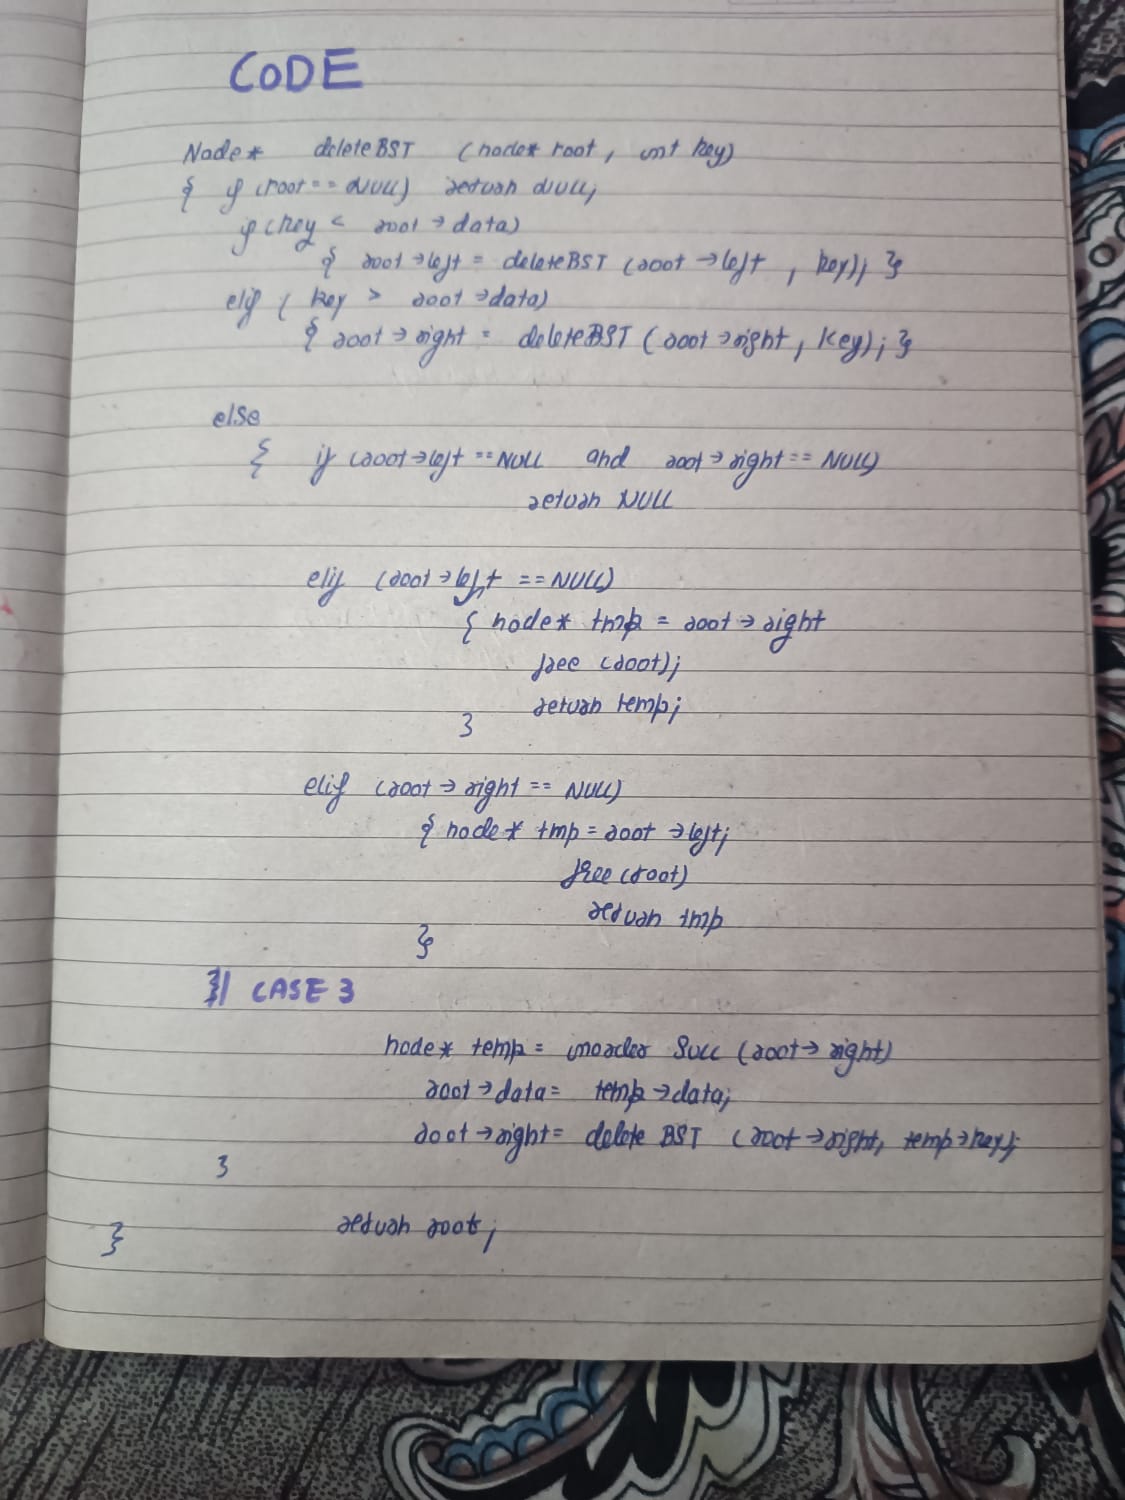 CODE
Node* deleteBST (node* root, int key)
{ if (root == NULL) return NULL;
if (key < root → data)
{ root → left = deleteBST (root → left , key); }
elif ( key > root → data)
{ root → right = deleteBST (root → right, key); }
else
{ if (root → left == NULL and root → right == NULL)
return NULL
elif (root → left == NULL)
{ node* tmp = root → right
free (root);
return temp;
}
elif (root → right == NULL)
{ node* tmp = root → left;
free (root)
return tmp
}
// CASE 3
node* temp = inorder Succ (root → right)
root → data = temp → data;
root → right = delete BST (root → right, temp → key);
}
return root;
}